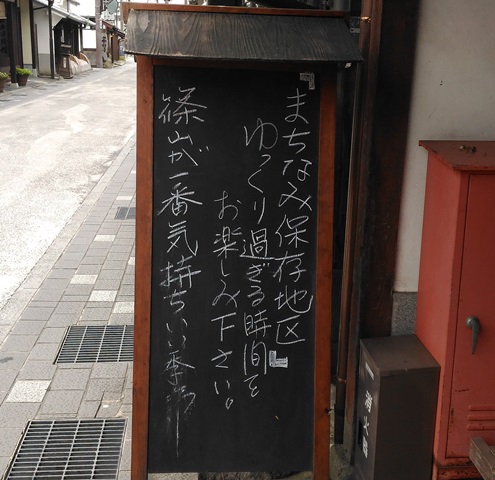 まちなみ保存地区
ゆっくり過ぎる時間を
お楽しみ下さい。
篠山が一番気持ちいい季節
消火器